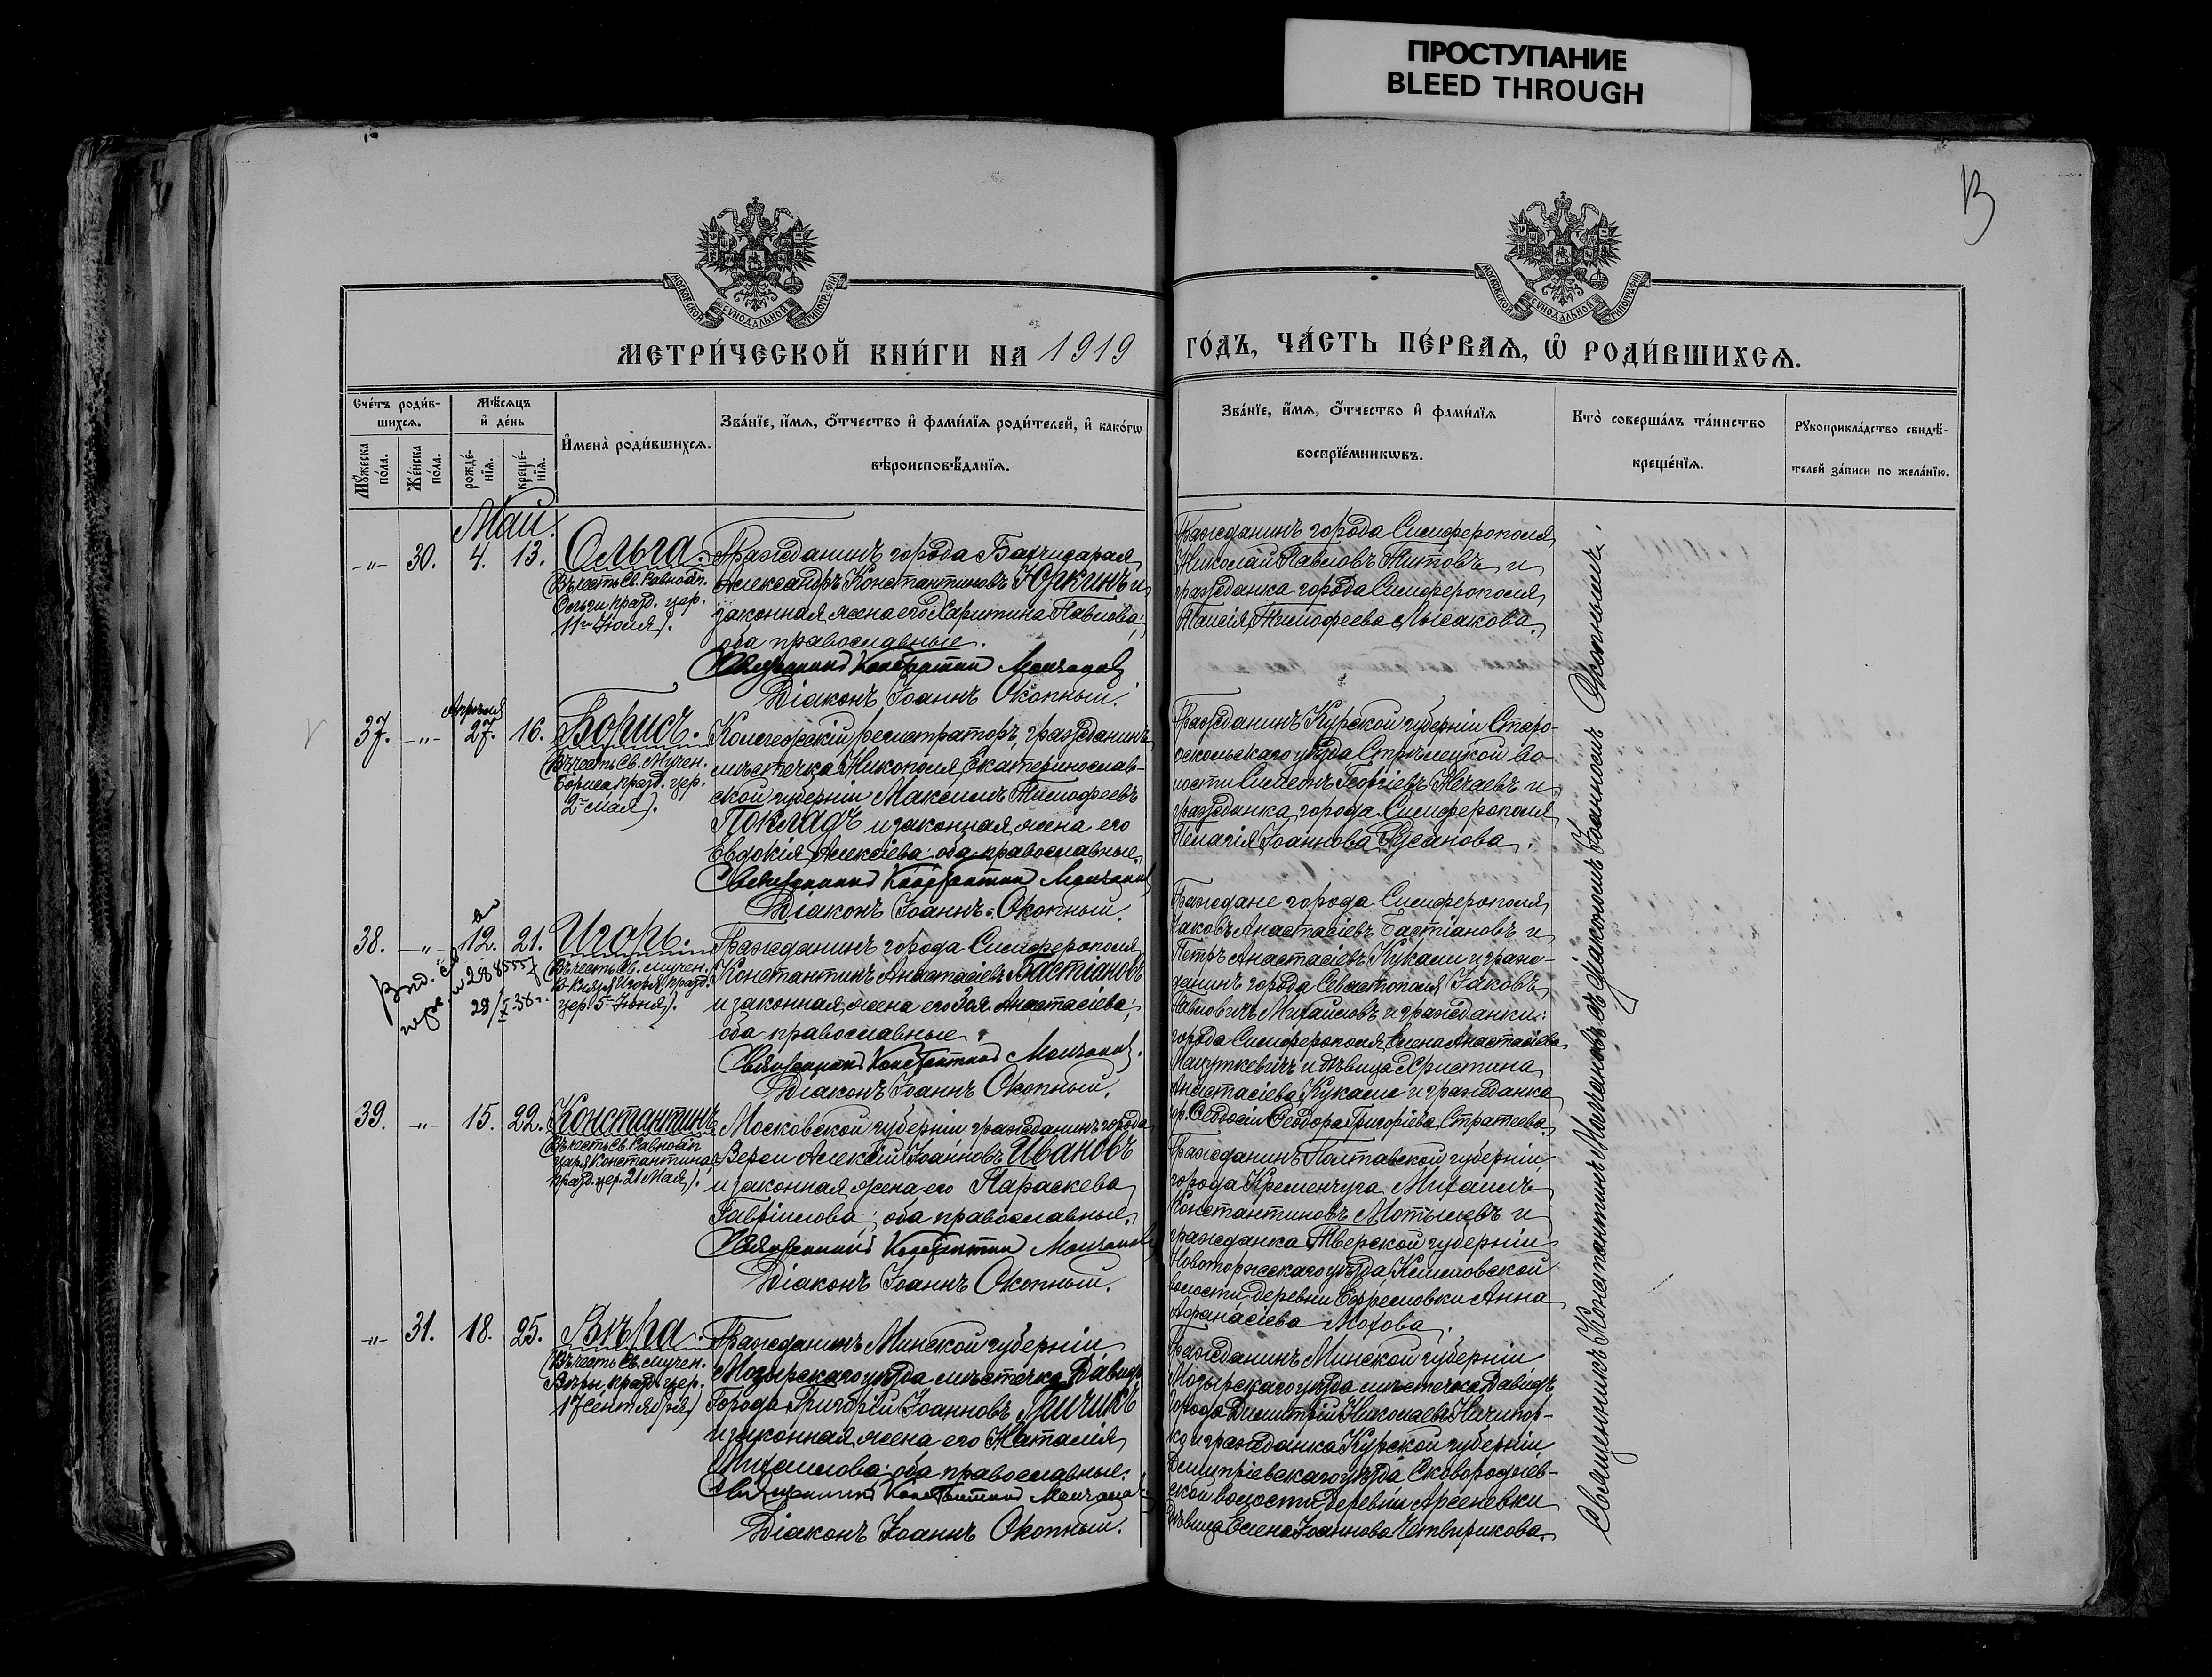 ПРОСТУПАНИЕ
BLEED THROUGH
13
МОСКОВСКОЙ СѴНОДАЛЬНОЙ ТИПОГРАФІИ
МОСКОВСКОЙ СѴНОДАЛЬНОЙ ТИПОГРАФІИ
МЕТРИ́ЧЕСКОЙ КНИ́ГИ НА 1919 ГО́ДЪ, ЧА́СТЬ ПЕ́РВАѦ, Ѡ҆ РОДИ́ВШИХСѦ.
Сче́тъ роди́в-
шихсѧ.
Мꙋ́жеска по́ла.
Же́нска по́ла.
Мѣ́сѧцъ
и҆ де́нь
рожде́-
нїѧ.
креще́-
нїѧ.
И҆мена̀ роди́вшихсѧ.
Зва́нїе, и҆́мѧ, ѻ҆́тчество и҆ фами́лїѧ роди́телей, и҆ како́гѡ
вѣроисповѣ́данїѧ.
Зва́нїе, и҆́мѧ, ѻ҆́тчество и҆ фами́лїѧ
воспрїе́мникѡвъ.
Кто̀ соверша́лъ та́инство
креще́нїѧ.
Рꙋкоприкла́дство свидѣ́-
телей за́писи по жела́нїю.
Май.
-"- 30. 4. 13. Ольга.
(Въ честь Св. Равноап.
Ольги, празд. цер.
11го Іюля).
Гражданинъ города Бахчисарая
Александръ Константиновъ Юркинъ и
законная жена его Харитина Павлова;
оба православные.
Священникъ Константинъ
Діаконъ Іоаннъ Окопный.
Гражданинъ города Симферополя
Николай Павловъ Титовъ и
гражданка города Симферополя
Таисія Тимофеева Лысакова.
Апрѣля
37. -"- 27. 16. Борисъ.
(Въ честь Св. Мучен.
Бориса, празд. цер.
2го мая).
Коллежскій регистраторъ, гражданинъ
мѣстечка Никополя, Екатеринослав-
ской губерніи Максимъ Тимофеевъ
Покладъ и законная жена его
Евдокія Алексіева; оба православные.
Священникъ Константинъ
Діаконъ Іоаннъ Окопный.
Гражданинъ Курской губерніи Старо-
оскольскаго уѣзда Стрѣлецкой во-
лости Симеонъ Георгіевъ Нечаевъ и
гражданка города Симферополя
Пелагія Іоаннова
38. -"- 12. 21. Игорь.
(Въ честь Св. мучен.
в. Князя Игоря, празд.
цер. 5 Іюня).
28/X-38г.
Гражданинъ города Симферополя
Константинъ Анастасіевъ Бастіановъ
и законная жена его Зоя Анастасіева;
оба православные.
Священникъ Константинъ
Діаконъ Іоаннъ Окопный.
Граждане города Симферополя
Іаковъ Анастасіевъ Бастіановъ и
Петръ Анастасіевъ Кукали и граж-
данинъ города Севастополя Іаковъ
Павловичъ Михайловъ и гражданки:
города Симферополя Елена Анастасіева
и дѣвица Христина
Анастасіева и гражданка
гор. Ѳеодосіи Ѳеодора Григоріева Стратеева.
39. -"- 15. 22. Константинъ
(Въ честь Св. Равноап.
Царя Константина,
празд. цер. 21 Мая).
Московской губерніи гражданинъ города
Вереи Алексій Іоанновъ Ивановъ
и законная жена его Параскева
Гавріилова; оба православные.
Священникъ Константинъ
Діаконъ Іоаннъ Окопный.
Гражданинъ Полтавской губерніи,
города Кременчуга Михаилъ
Константиновъ Мотылевъ и
гражданка Тверской губерніи
Новоторжскаго уѣзда,
волости, деревни Ефремовки Анна
Афанасіева Мохова.
-"- 31. 18. 25. Вѣра.
(Въ честь Св. мучен.
Вѣры, празд. цер.
17 сентября)
Гражданинъ Минской губерніи
Мозырскаго уѣзда мѣстечка Давидъ
Города Григорій Іоанновъ Гричикъ
и законная жена его Наталія
Михаилова; оба православные.
Священникъ Константинъ
Діаконъ Іоаннъ Окопный.
Гражданинъ Минской губерніи
Мозырскаго уѣзда мѣстечка Давидъ
Города Димитрій Николаевъ Ничипор-
ко и гражданка Курской губерніи
Дмитріевскаго уѣзда Сковороднев-
ской волости деревни Арсеневки
дѣвица Елена Іоаннова Четверикова.
Священникъ Константинъ съ діакономъ Іоанномъ Окопнымъ.